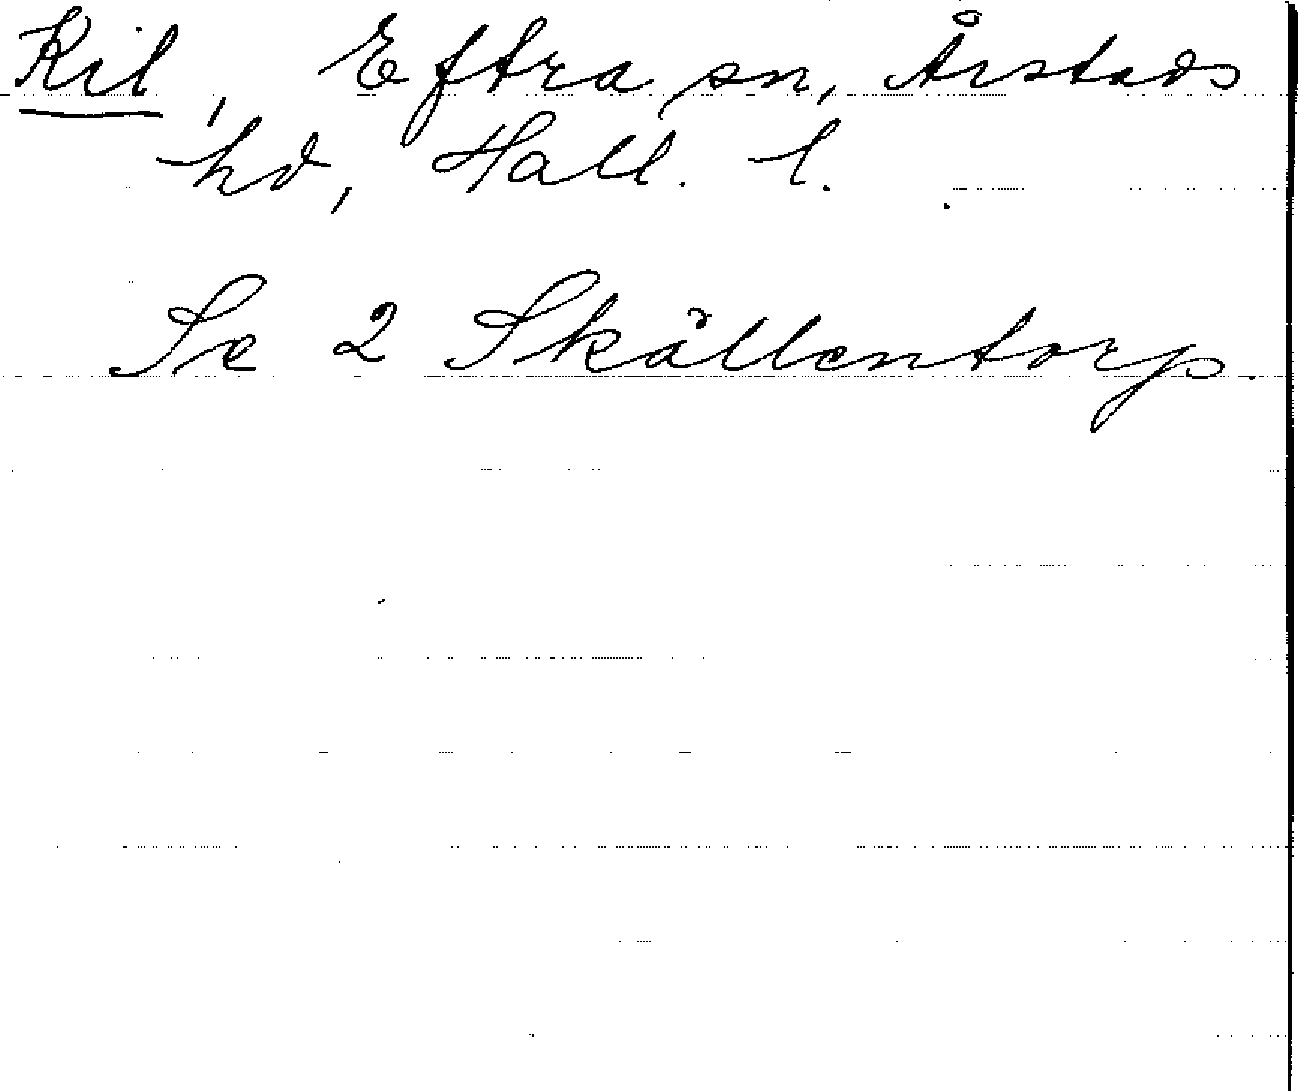 Kil, Eftra sn, Årstads
hd, Hall. l.
Se 2 Skällentorp.